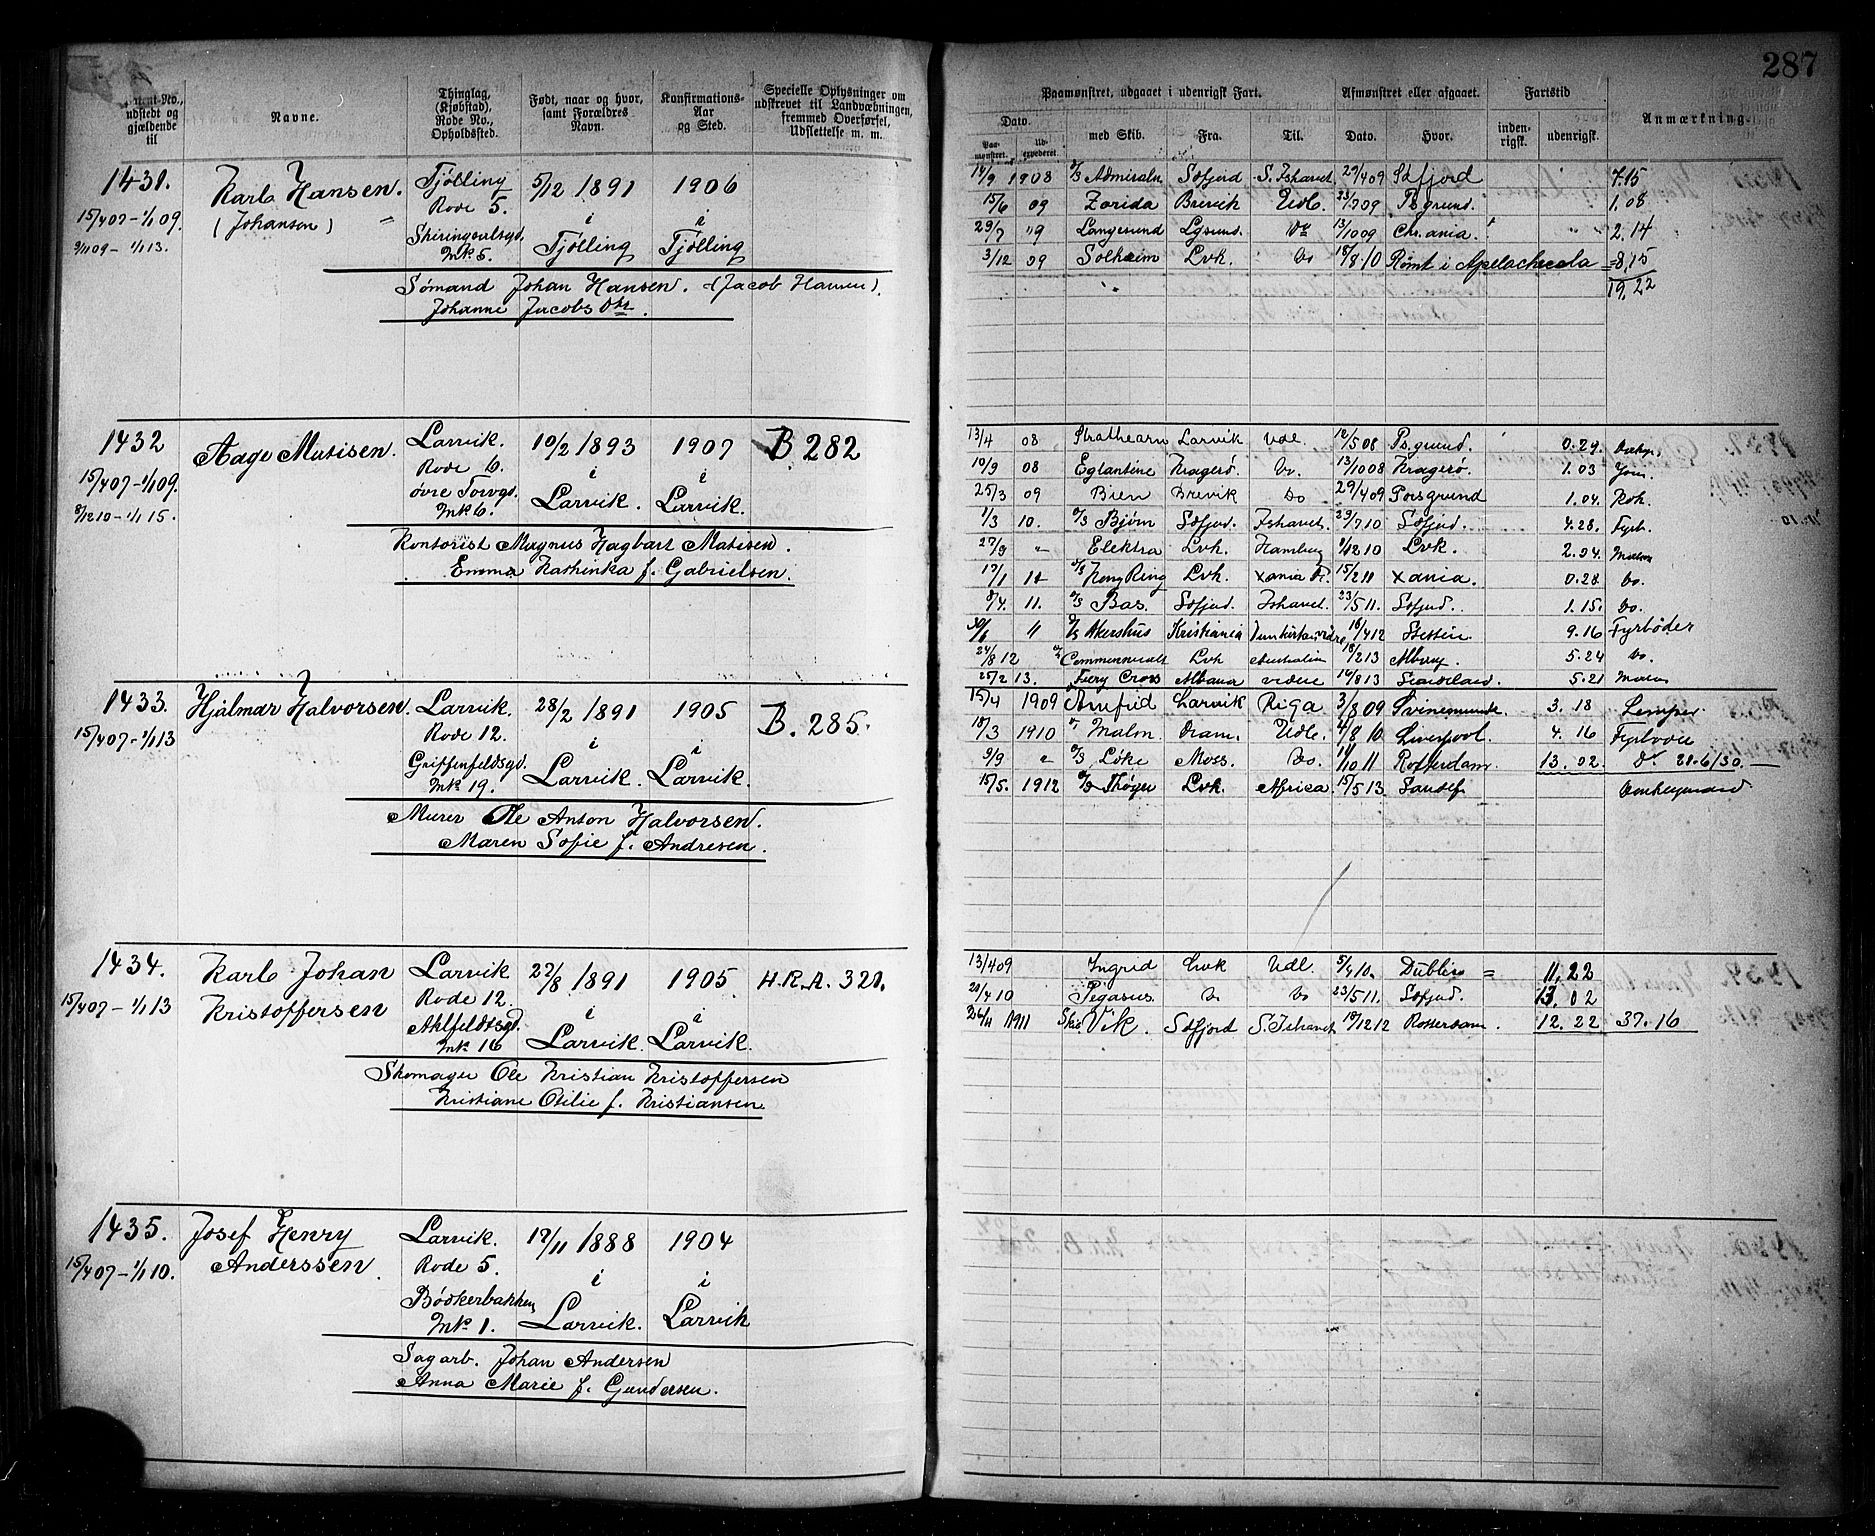 287
Patent-No., udstedt og gjældende til
Navne.
Thinglag, (Kjøbstad), Rode No., Opholdssted.
Født, naar og hvor, samt Forældres Navn.
Konfirmations-Aar og Sted.
Specielle Oplysninger om udskrevet til Landvæbningen, fremmed Overførsel, Udslettelse m. m.
Paamønstret, udgaaet i udenrigsk Fart.
Afmønstret eller afgaaet.
Fartstid
Anmærkning.
Dato.
Paa-mønstret.
Ud-expederet.
med Skib.
Fra.
Til.
Dato.
Hvor.
inden-rigsk.
udenrigsk.
1431. Karl Hansen. Tjølling 5/12 1891 1906
15/4 07 - 1/1 09. (Johansen) Rode 5. i i
9/1 09 - 1/1 13. Skiringssalsgd. Tjølling Tjølling
Mk 5.
Sømand Johan Hansen. (Jacob Hansen).
Johanne Jacobsdtr.
14/9 1908 S/S Admiralen Sefjord S. Ishavet 29/4 09 Sefjord 7.15
15/6 09 Zorida Brevik Udl. 23/7 09 Psgrund. 1.08
29/7 09 Langesund Lgsund. Do 13/10 09 Chr.ania. 2.14
3/12 09 Solheim Lvk. Do 18/8 10 Rømt i Apelachicola = 8,15
19,22
1432 Aage Matisen. Larvik. 10/2 1893 1907 B 282
15/4 07 - 1/1 09. Rode 6. i i
8/12 10 - 1/1 15. øvre Torvgd. Larvik. Larvik.
Mk 6.
Kontorist Magnus Hagbart Matisen.
Emma Kathinka f. Gabrielsen.
13/4 08 Strathearn Larvik Udl. 12/5 08 Psgrund. 0.29.
10/9 08 Eglantine Kragerø Do. 13/10 08 Kragerø. 1.03 Jom.
25/3 09 Bien Brevik Do 29/4 09 Porsgrund 1.04. Kok.
1/3 10. S/S Bjørn Sefjord. Ishavet. 29/7 10 Sefjord. 4.28. Fyrb.
27/9 " Elektra Lvk. Hamburg 1/12 10 Lvk. 2.04. Matros
17/1 11 S/S Kong Ring Lvk. Xania 15/2 11 Xania. 0.28 Do.
8/4. 11. S/S Bas. Sefjord. Ishavet. 23/5 11. Sefjord. 1.15. Do.
30/6 11 S/S Akershus Kristiania 16/4 12 Stettin 9.16 Fyrbøder
24/8 12 Commonwealt Lvk Australia 18/2 13 Albany. 5.24 Do.
25/2 13. Fiery Cross Albana videre 14/8 13 5.21 Matros
1433. Hjalmar Halvorsen. Larvik. 28/2 1891 1905 B. 285.
15/4 07 - 1/1 13 Rode 12. i i
Griffenfeldsgd. Larvik. Larvik.
Mk 19.
Murer Ole Anton Halvorsen.
Maren Sofie f. Andresen.
15/4 1909 Larvik Riga 3/8 09 Svinemunde 3.18 Lemper
18/3 1910 Malm Dram. Udl. 4/8 10 Liverpool. 4.16
9/9 " S/S Løke Moss. Do. 11/10 11 Rotterdam. 13.02. Do. 21.6/30.
15/5. 1912 S/S Thøger Lvk. Africa. 15/5 13 Sandef.
1434. Karl Johan Kristoffersen Larvik 22/8 1891 1905 H.R.A. 321.
15/4 07 - 1/1 13 Rode 12. i i
Ahlfeldtsgd. Larvik. Larvik.
Mk 16
Skomager Ole Kristian Kristoffersen
Kristiane Otilie f. Kristiansen.
13/4 09 Ingrid Lvk Udl. 5/4 10. Dublin = 11,22
20/4 10 Pegasus. Do Do 23/5 11. Sefjord. 13.02
26/11 1911 Vik. Sefjord S. Ishavet 19/12 12 Rotterdam. 12.22 37.16
1435. Josef Henry Anderssen Larvik. 19/11 1888 1904
15/4 07 - 1/1 10. Rode 5. i i
Bødkerbakken Larvik. Larvik
Mk 1.
Sagarb. Johan Andersen
Anna Marie f. Gundersen.